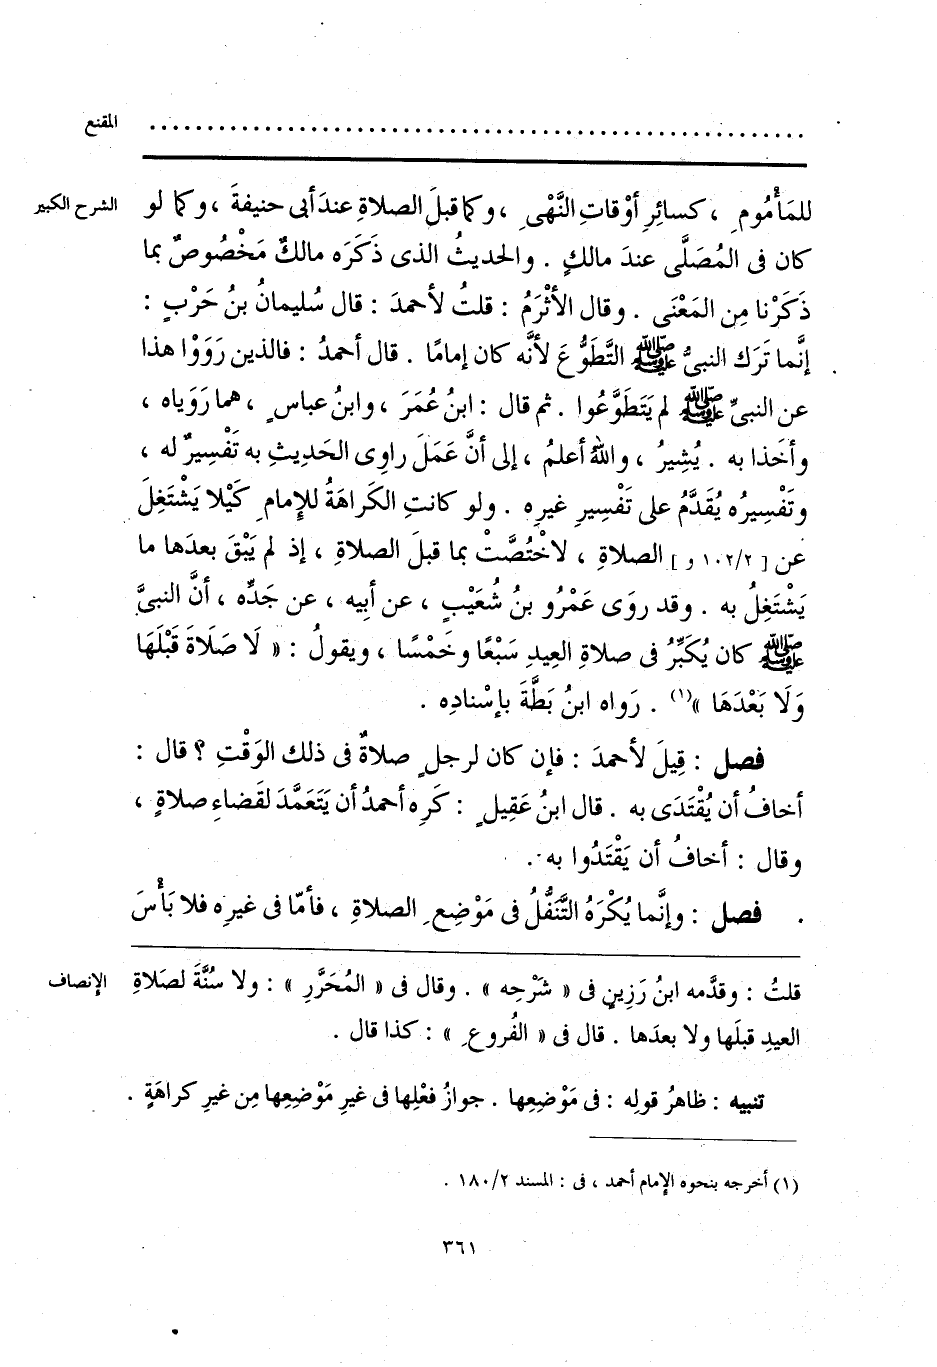 المقنع ........................................................
الشرح الكبير للمَأْمُومِ ، كسائِرِ أوْقاتِ النَّهْىِ ، وكما قبلَ الصلاةِ عندَ أبى حنيفةَ ، وكما لو
كان فى المُصَلَّى عندَ مالكٍ . والحديثُ الذى ذَكَرَه مالكٌ مَخْصُوصٌ بما
ذَكَرْنا مِن المَعْنَى . وقال الأثْرَمُ : قلتُ لأحمدَ : قال سُليمانُ بنُ حَرْبٍ :
إنَّما تَرَك النبىُّ ﷺ التَّطَوُّعَ لأنَّه كان إمامًا . قال أحمدُ : فالذين رَوَوْا هذا
عن النبىِّ ﷺ لم يَتَطَوَّعُوا . ثم قال : ابنُ عُمَرَ ، وابنُ عباسٍ ، هما رَوَياه ،
وأخَذا به . يُشِيرُ ، واللهُ أعلمُ ، إلى أنَّ عَمَلَ راوِى الحَدِيثِ به تَفْسِيرٌ له ،
وتَفْسِيرُه يُقَدَّمُ على تَفْسِيرِ غيرِه . ولو كانتِ الكَراهَةُ للإِمامِ كَيْلا يَشْتَغِلَ
عن [ ١٠٢/٢ و ] الصلاةِ ، لاخْتُصَّتْ بما قبلَ الصلاةِ ، إذ لم يَبْقَ بعدَها ما
يَشْتَغِلُ به . وقد روَى عَمْرُو بنُ شُعَيْبٍ ، عن أبِيه ، عن جَدِّه ، أنَّ النبىَّ
ﷺ كان يُكَبِّرُ فى صلاةِ العِيدِ سَبْعًا وخَمْسًا ، ويقولُ : « لَا صَلَاةَ قَبْلَهَا
وَلَا بَعْدَهَا »(١) . رَواه ابنُ بَطَّةَ بإسْنادِه .
فصل : قِيلَ لأحمدَ : فإن كان لرجلٍ صلاةٌ فى ذلك الوَقْتِ ؟ قال :
أخافُ أن يُقْتَدَى به . قال ابنُ عَقِيلٍ : كَرِه أحمدُ أن يَتَعَمَّدَ لقَضاءِ صلاةٍ ،
وقال : أخافُ أن يَقْتَدُوا به .
فصل : وإنَّما يُكْرَهُ التَّنَفُّلُ فى مَوْضِعِ الصلاةِ ، فأمّا فى غيرِه فلا بَأْسَ
الإنصاف قلتُ : وقدَّمه ابنُ رَزِينٍ فى « شَرْحِه » . وقال فى « المُحَرَّرِ » : ولا سُنَّةَ لصَلاةِ
العيدِ قبلَها ولا بعدَها . قال فى « الفُروعِ » : كذا قال .
تنبيه : ظاهرُ قولِه : فى مَوْضِعِها . جوازُ فعْلِها فى غيرِ مَوْضِعِها مِن غيرِ كراهَةٍ .
(١) أخرجه بنحوه الإمام أحمد ، فى : المسند ١٨٠/٢ .
٣٦١